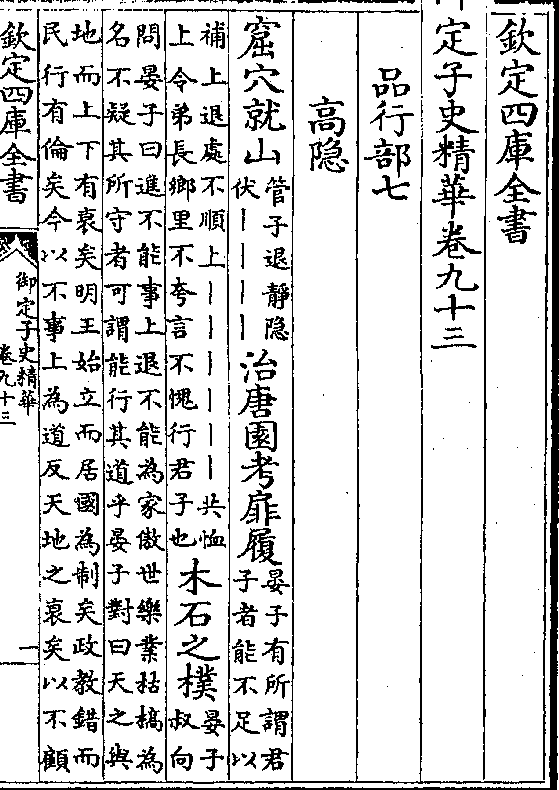 欽定四庫全書
御定子史精華卷九十三
品行部七
高隐
窟穴就山
管子退静隐
伏｜｜｜｜
治唐園考扉履
晏子有所謂君
子者能不足以
補上退處不順上｜｜｜｜｜｜共恤
上令弟長鄉里不夸言不愧行君子也
木石之樸
晏子
叔向
問晏子曰進不能事上退不能為家傲世樂業枯槁為
名不疑其所守者可謂能行其道乎晏子對曰天之與
地而上下有衰矣明王始立而居國為制矣政教錯而
民行有倫矣今以不事上為道反天地之衰矣以不顧
欽定四庫全書
御定子史精華
卷九十三
一